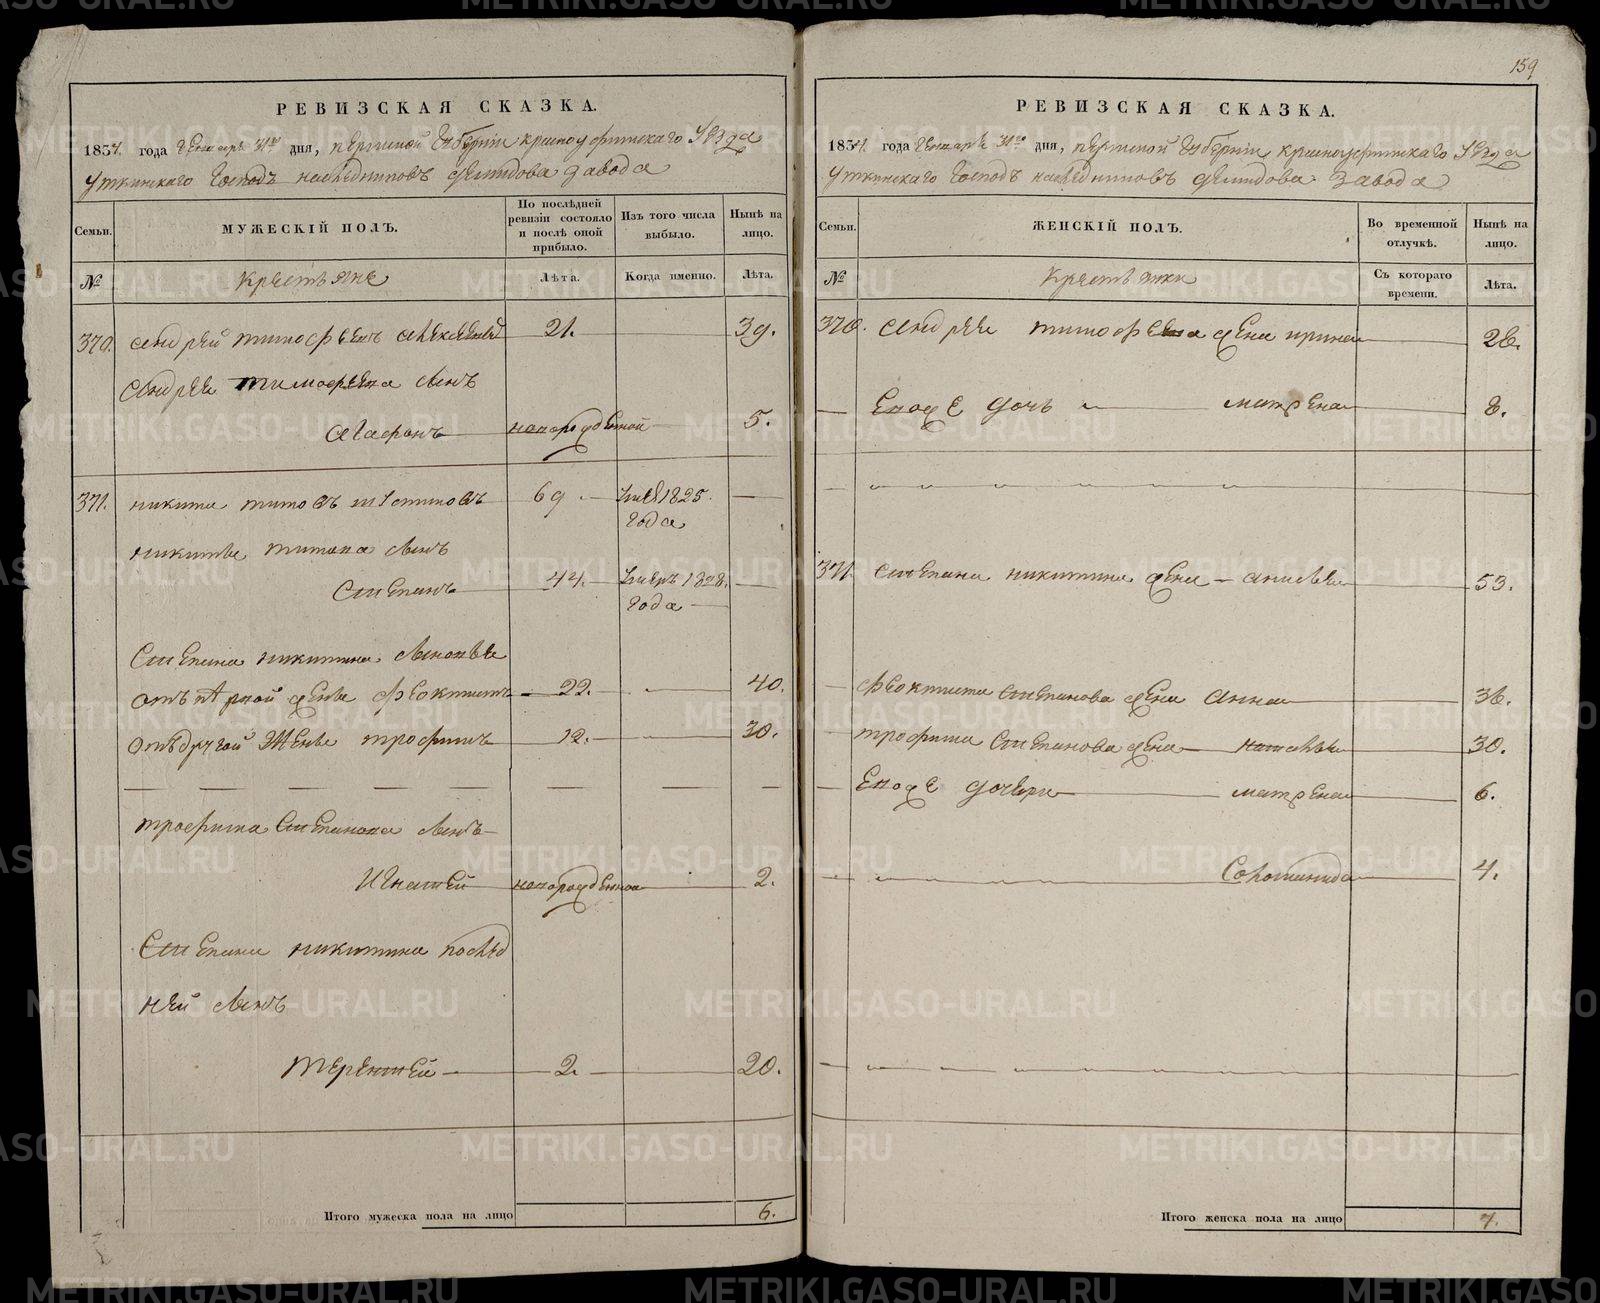 159
РЕВИЗСКАЯ СКАЗКА.
1834. года Генваря 31го дня, Пермской Губернiи Красноуфимскаго Уезда
Уткинскаго Господъ наследниковъ Демидова завода
Семьи.
МУЖЕСКIЙ ПОЛЪ.
По послѣдней ревизiи состояло и послѣ оной прибыло.
Изъ того числа выбыло.
Нынѣ на лицо.
№
Крестьяне
Лѣта.
Когда именно.
Лѣта.
370. Андрей Тимофеевъ Алексеевъ 21. 39.
Андрея Тимофеева сынъ
Агафонъ новорожденной 5.
371. Никита Титовъ 69. Умре 1825.
года
Никиты Титова сынъ
Степанъ 44. Умеръ 1828.
года
Степана Никитина сыновья
отъ первой жены Феоктистъ 22. 40.
отъ другой жены Трофимъ 12. 30.
Трофима Степанова сынъ
Игнатей новорожденной 2.
Степана Никитина послед
ней сынъ
Терентей 2. 20.
Итого мужеска пола на лицо 6.
РЕВИЗСКАЯ СКАЗКА.
1834. года Генваря 31го дня, Пермской Губернiи Красноуфимскаго Уезда
Уткинскаго Господъ наследниковъ Демидова завода
Семьи.
ЖЕНСКIЙ ПОЛЪ.
Во временной отлучкѣ.
Нынѣ на лицо.
№
Крестьянки
Съ котораго времени.
Лѣта.
370. Андрея Тимофеева жена Ирина 28.
Евоже дочь Матрена 8.
371. Степана Никитина жена Анисья 53.
Феоктиста Степанова жена Анна 36.
Трофима Степанова жена Наталья 30.
Евоже дочери Матрена 6.
Соломанида 4.
Итого женска пола на лицо 7.
METRIKI.GASO-URAL.RU